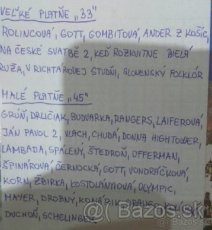 VEĽKÉ PLATŇE „33"
ROLINCOVÁ, GOTT, GOMBITOVÁ, ANDER Z KOŠIC,
NA ČESKÉ SVATBĚ 2, KEĎ ROZKVITNE BIELA
RUŽA, V RICHTÁROVEJ STUDNI, SLOVENSKÝ FOLKLÓR
MALÉ PLATŇE „45"
GRÚŇ, DRUČIAK, BUDVARKA, RANGERS, LAIFEROVÁ,
JÁN PAVOL 2, VLACH, CHUDÁ, DONNA HIGHTOWER,
LAMBADA, SPÁLENÝ, ŠTEDROŇ, OFFERMAN,
ŠPINAROVÁ, ČERNOCKÁ, GOTT, VONDRÁČKOVÁ,
KORN, ZBIRKA, KOSTOLÁNYIOVÁ, OLYMPIC,
MAYER, DROBNÝ,
DUCHOŇ, SCHELINGER
Bazos.sk